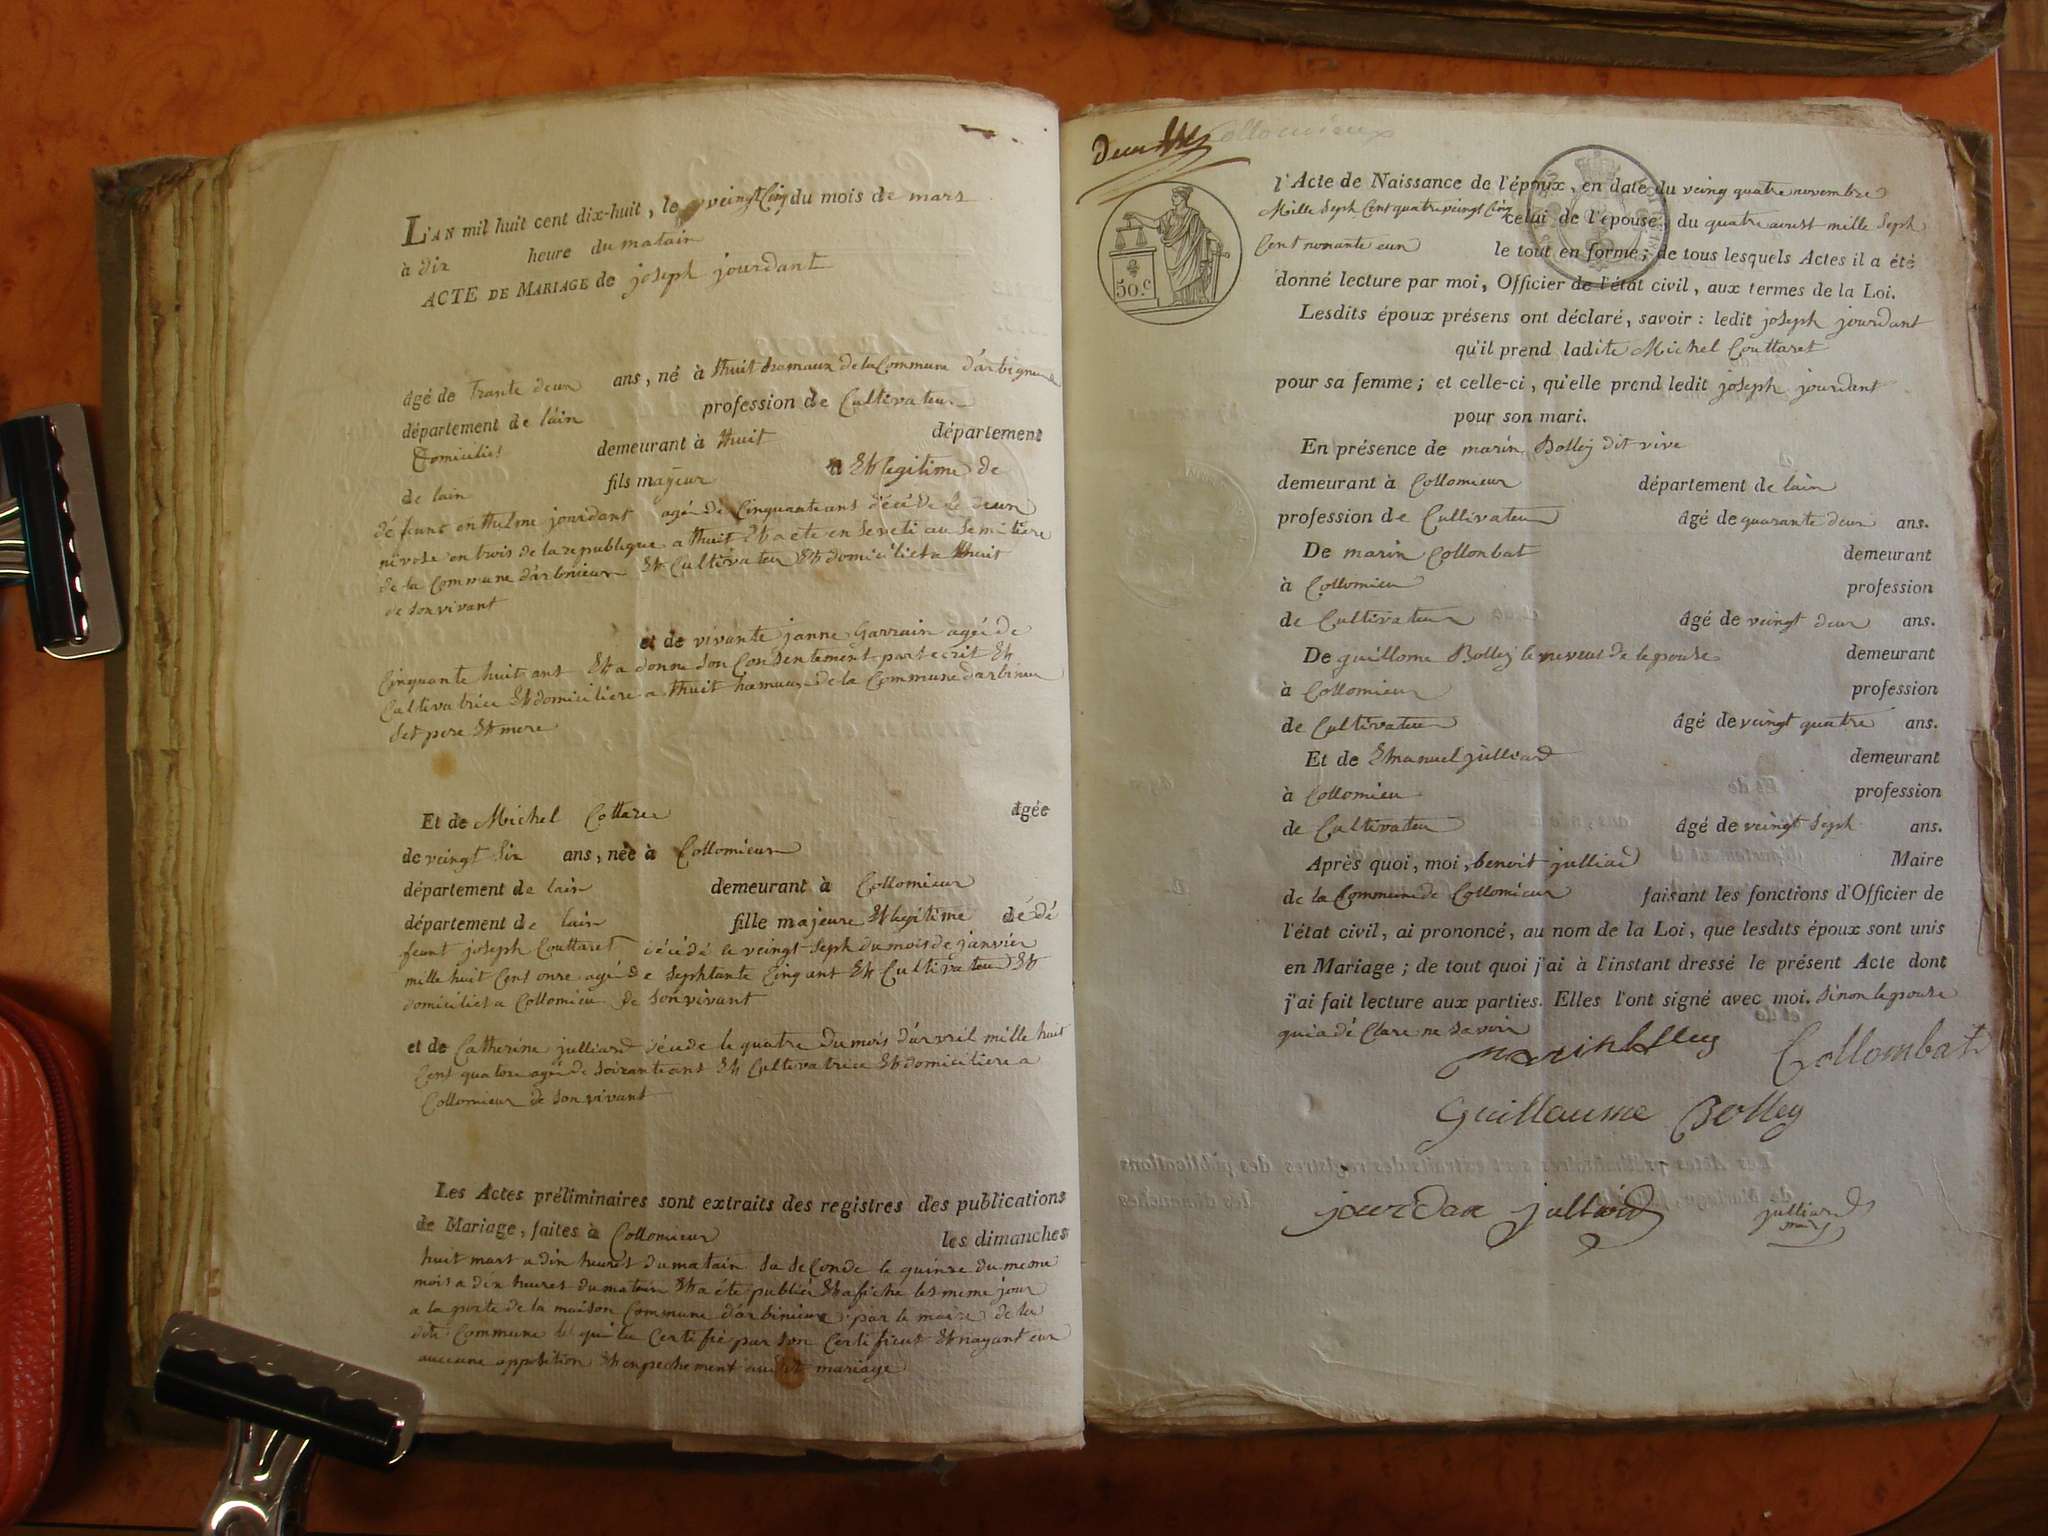 L'AN mil huit cent dix-huit, le veingt Cinq du mois de mars
à dix heure du matain
ACTE DE MARIAGE de joseph jourdant
âgé de Trante deux ans, né à thuit hamaux de la Commune d'arbignieux
département de l'ain profession de Cultivateur
Domicilié demeurant à thuit département
de lain fils majeur Et legitime de
défunt enthelme jourdant agé de Cinquante ans décédé le deux
nivose en trois de la republique a thuit Et a ete enseveli au semitiere
de la Commune d'arbinieux Et Cultivateur Et domiciliet a thuit
de son vivant
et de vivante janne Garrain agée de
Cinquante huit ans Et a donne son Consentement par ecrit Et
Cultivatrice Et domiciliere a thuit hamaux de la Commune d'arbinieu
set pere Et mere
Et de Michel Cottaret âgée
de veingt six ans, née à Collomieux
département de lain demeurant à Collomieux
département de lain fille majeure Et legitime dé dé
feunt joseph Couttaret décédé le veingt seph du mois de janvier
mille huit Cent onze agé de sephtante Cinq ans Et Cultivateur Et
domiciliet a Collomieu de son vivant
et de Catherine julliard décede le quatre du mois d'avril mille huit
Cent quatorze agée de soixante ans Et Cultivatrice Et domiciliere a
Collomieux de son vivant
Les Actes préliminaires sont extraits des registres des publications
de Mariage, faites à Collomieux les dimanches
huit mars a dix heures du matain la seConde le quinze du meme
mois a dix heures du matain Et a été publiér Et afiche les meme jour
a la porte de la maison Commune d'arbinieux par le maire de la
dite Commune le qui la Certifié par son Certificat Et nayant eux
aucune opposition Et enpechement audit mariage
Collomieux
50.c
l'Acte de Naissance de l'époux, en date du veing quatre novembre
Mille seph Cent quatre veingt Cinq celui de l'épouse, du quatre aoust mille seph
Cent nonante eun le tout en forme; de tous lesquels Actes il a été
donné lecture par moi, Officier de l'état civil, aux termes de la Loi.
Lesdits époux présens ont déclaré, savoir : ledit joseph jourdant
qu'il prend ladite Michel Couttaret
pour sa femme; et celle-ci, qu'elle prend ledit joseph jourdant
pour son mari.
En présence de marin Bolley dit vive
demeurant à Collomieux département de lain
profession de Cultivateur âgé de quarante deux ans.
De marin Collonbat demeurant
à Collomieu profession
de Cultivateur âgé de veingt deux ans.
De guillome Bolley le neveus de lepouse demeurant
à Collomieux profession
de Cultivateur âgé de veingt quatre ans.
Et de Emanuel julliard demeurant
à Collomieu profession
de Cultivateur âgé de veingt seph ans.
Après quoi, moi, benoit julliard Maire
de la Commune de Collomieux faisant les fonctions d'Officier de
l'état civil, ai prononcé, au nom de la Loi, que lesdits époux sont unis
en Mariage; de tout quoi j'ai à l'instant dressé le présent Acte dont
j'ai fait lecture aux parties. Elles l'ont signé avec moi. sinon lepouse
qui a déClare ne savoir
marin bolley Collombat
Guillaume Bolley
jourdan julliard julliard
maire